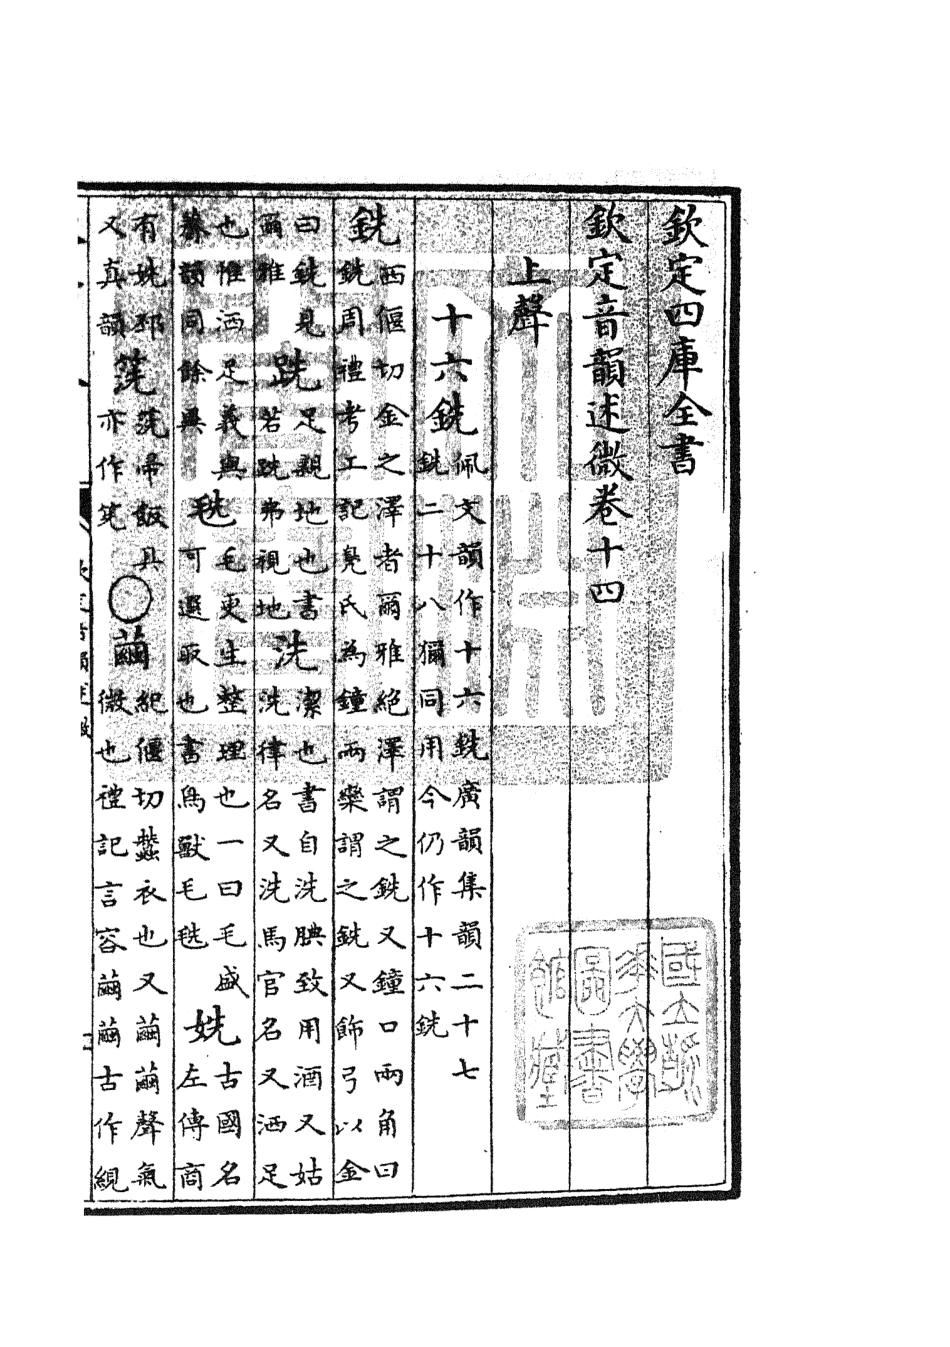 欽定四庫全書
欽定音韻述微卷十四
上聲
十六銑佩文韻作十六銑廣韻集韻二十七
銑二十八獮同用今仍作十六銑
銑西偃切金之澤者爾雅絕澤謂之銑又鐘口兩角曰
銑周禮考工記鳧氏為鐘兩欒謂之銑又飾弓以金
曰銑見
爾雅
跣足親地也書
若跣弗視地
洗潔也書自洗腆致用酒又姑
洗律名又洗馬官名又洒足
也惟洒足義與
薺韻同餘異
毨毛更生整理也一曰毛盛
可選取也書鳥獸毛毨
姺古國名
左傳商
有姺邳
又真韻
筅筅帚飯具
亦作筅
○繭紀偃切蠶衣也又繭繭聲氣
微也禮記言容繭繭古作絸
國立浙江大學圖書館藏